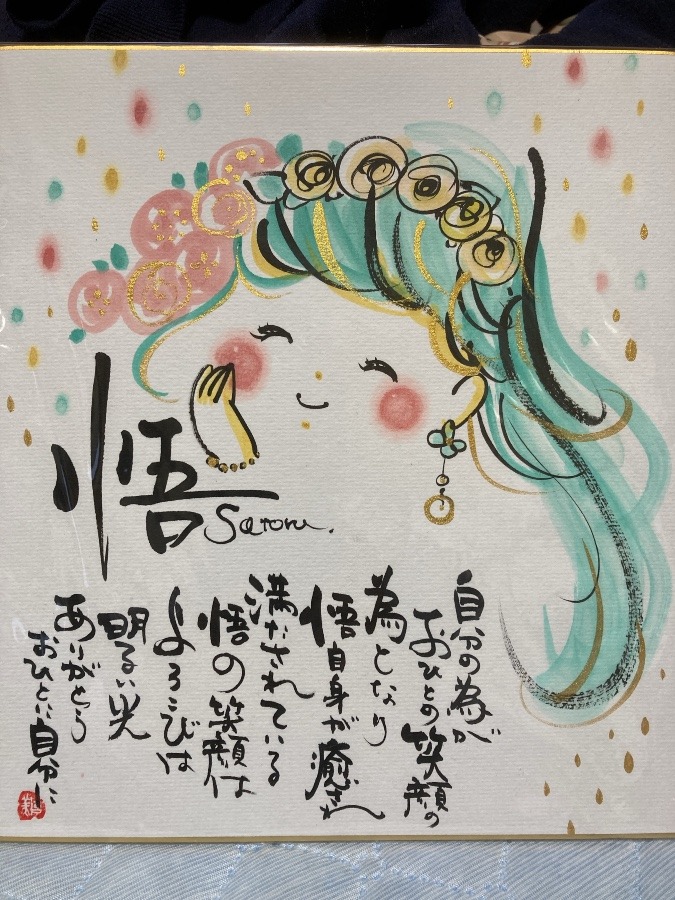 悟
Satoru.
自分の為が
おひとの笑顔の
為となり
悟自身が癒され
満たされている
悟の笑顔は
よろこびは
明るい光
ありがとう
おひとに自分に